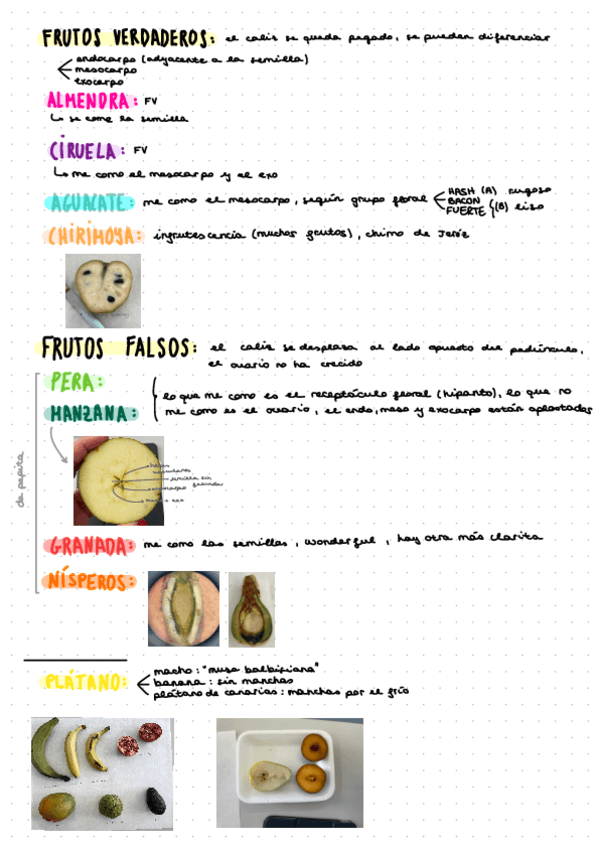 FRUTOS VERDADEROS: el caliz se queda pegado, se pueden diferenciar
endocarpo (adyacente a la semilla)
mesocarpo
exocarpo
ALMENDRA: FV
↳ se come la semilla
CIRUELA: FV
↳ me como el mesocarpo y el exo
AGUACATE: me como el mesocarpo, según grupo floral
HASH (A) rugoso
BACON
FUERTE (B) liso
CHIRIMOYA: infrutescencia (muchos frutos), chimo de Jeréz
FRUTOS FALSOS: el caliz se desplaza al lado opuesto del pedúnculo,
el ovario no ha crecido
PERA:
MANZANA:
lo que me como es el receptáculo floral (hipanto), lo que no
me como es el ovario, el endo, meso y exocarpo están aplastados
de pepita
haces
vasculares
semilla sin
GRANADA: me como las semillas, wonderful, hay otra más clarita
NÍSPEROS:
PLÁTANO:
macho: "musa balbisiana"
banana: sin manchas
plátano de canarias: manchas por el frío